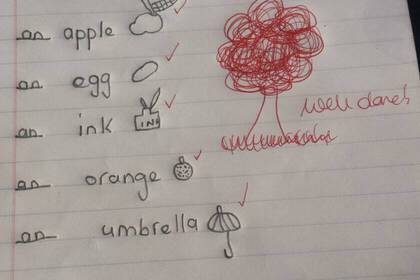 an apple
an egg
an ink
INK
an orange
an umbrella
Well done!